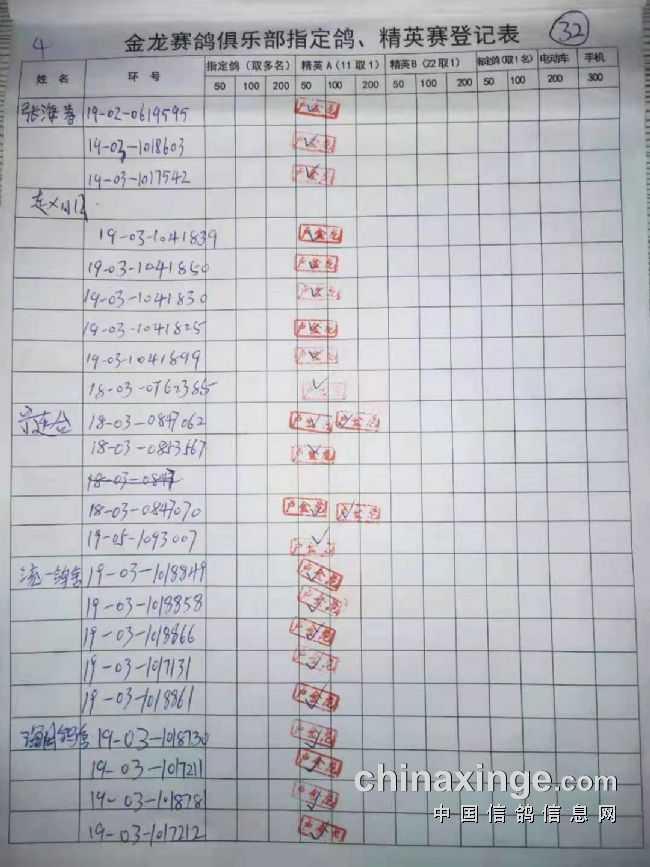 4
金龙赛鸽俱乐部指定鸽、精英赛登记表
32
姓 名 环 号 指定鸽（取多名） 精英A（11取1） 精英B（22取1） 指定鸽（取1名） 电动车 手机
50 100 200 50 100 200 50 100 200 50 100 200 300
张海春 19-02-0619595
19-03-1018603
19-03-1017542
19-03-1041839
19-03-1041850
19-03-1041830
19-03-1041825
19-03-1041899
18-03-0762385
18-03-0847062
18-03-0853567
18-03-0847
18-03-0847070
19-05-1093007
19-03-1018849
19-03-1018858
19-03-1018866
19-03-1017131
19-03-1018861
19-03-1018730
19-03-1017211
19-03-1018781
19-03-1017212
chinaxinge.com
中国信鸽信息网